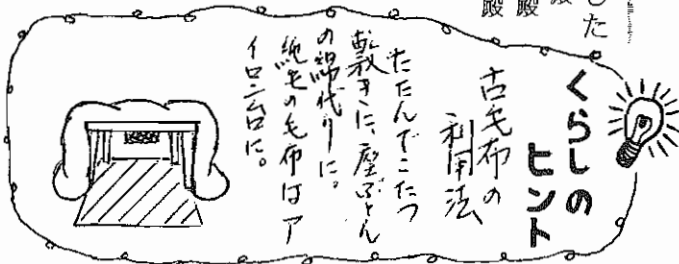 した
殿
殿
殿
くらしの
ヒント
古毛布の
利用法
たたんでこたつ
敷きに、座ぶとん
の綿代りに。
純毛の毛布はア
イロン台に。